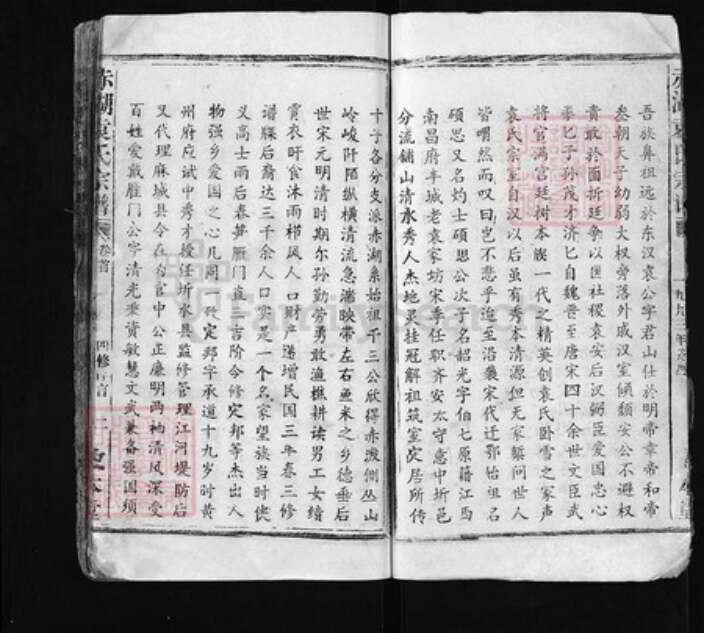 吾族鼻祖远於东汉袁公字君山仕於明帝章帝和帝
叁朝天子幼弱大权旁落外戚汉室倾颓安公不避权
贵敢於面折廷争以匡社稷袁安后汉弼臣爱国忠心
拳匕子孙茂才济匕自魏晋至唐宋四十余世文臣武
将官满宫廷树本族一代之精英创袁氏卧雪之家声
袁氏宗至自汉以后虽有秀本清源但无家乘问世人
皆喟然而叹曰岂不悲乎迨至洛农宋代迁鄂始祖名
硕思又名灼士硕思公次子名韶光字伯七原籍江西
南昌府丰城老袁家坊宋季任职齐安太守意中圻邑
分流铺山清水秀人杰地灵挂冠解祖筑室定居所传
十子各分支派赤湖系始祖千三公欣得赤湖侧丛山
岭峻阡陌纵横清流急湍映带左右鱼米之乡德垂后
世宋元明清时期尔孙勤劳勇敢渔樵耕读男工女绩
宵衣旰食沐雨栉风人口财产递增民国三年春三修
谱牒后裔达三千余人口实是一个名家望族当时侠
义高士雨后春笋雁门直言阶令修定邦等杰出人
物强乡爱国之心凡阁 欣定邦字承道十九岁时黄
州府应试中秀才授任圻水县监修管理江河堤防后
又代理麻城县令在为官中公正廉明两袖清风深受
百姓爱戴雁门公字清光秉资敏慧文武兼备强国须
赤湖袁氏宗谱
卷首
四修